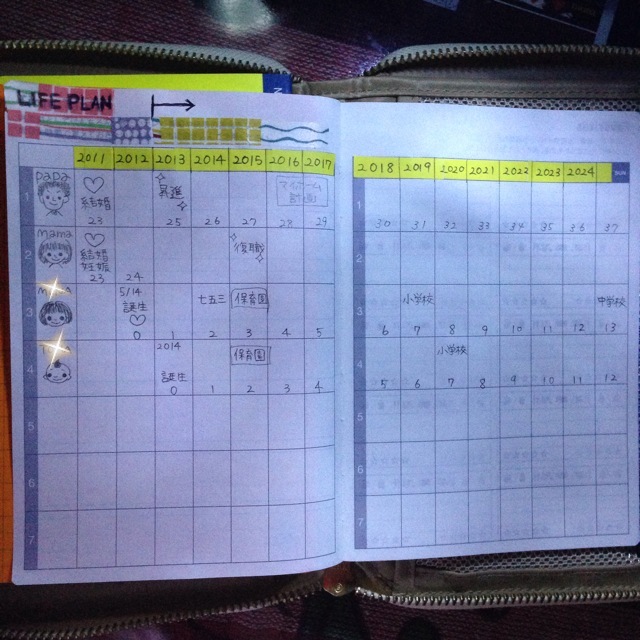 LIFE PLAN
2011 2012 2013 2014 2015 2016 2017
2018 2019 2020 2021 2022 2023 2024
1 papa
結婚 昇進 マイホーム
計画
23 25 26 27 28 29
1
30 31 32 33 34 35 36 37
2 mama
結婚 復職
妊娠
23 24
2
3
5/14
誕生 七五三 保育園
0 1 2 3 4 5
3
小学校 中学校
6 7 8 9 10 11 12 13
4
2014
保育園
誕生
0 1 2 3 4
4
小学校
5 6 7 8 9 10 11 12
5
6
7
5
6
7